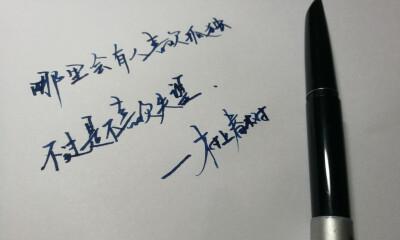 哪里会有人喜欢孤独
不过是不喜欢失望.
—村上春树